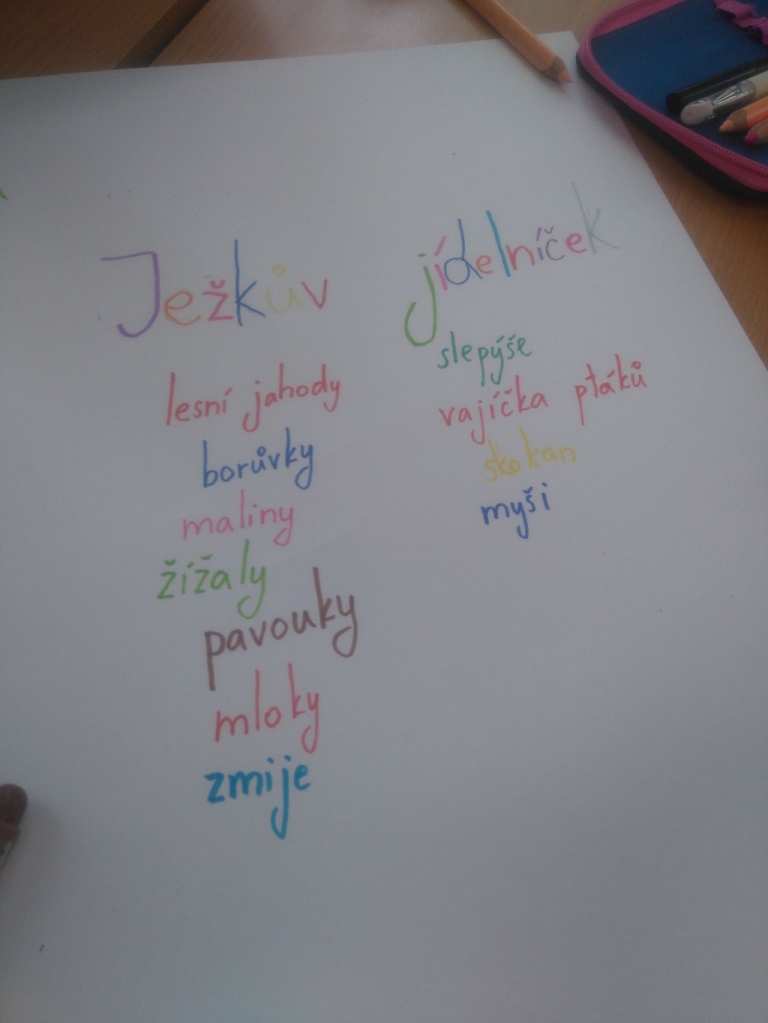 Ježkův jídelníček
lesní jahody
borůvky
maliny
žížaly
pavouky
mloky
zmije
slepýše
vajíčka ptáků
skokan
myši